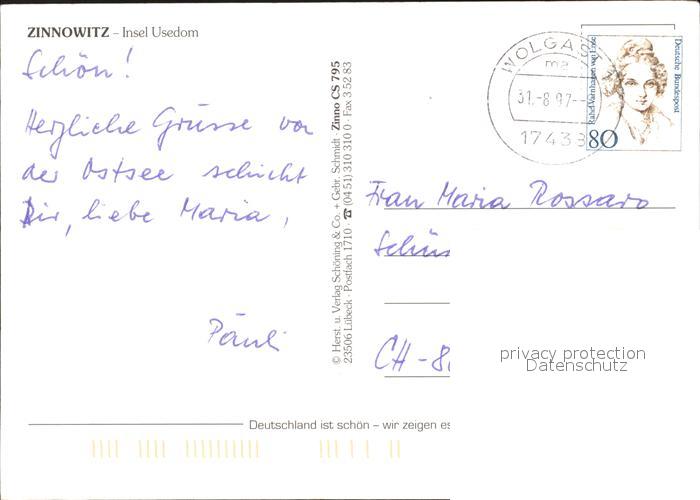 ZINNOWITZ – Insel Usedom
Schön!
Herzliche Grüsse von
der Ostsee schickt
Dir, liebe Maria,
Pauli
© Herst. u. Verlag Schöning & Co. + Gebr. Schmidt · Zinno CS 795
23506 Lübeck · Postfach 1710 · ☎ (04 51) 310 310 0 · Fax 3 52 83
WOLGAST
31.-8.97
17438
Rahel Varnhagen von Ense
Deutsche Bundespost
80
Frau Maria Rossaro
Schüs
CH-8
privacy protection
Datenschutz
Deutschland ist schön – wir zeigen es